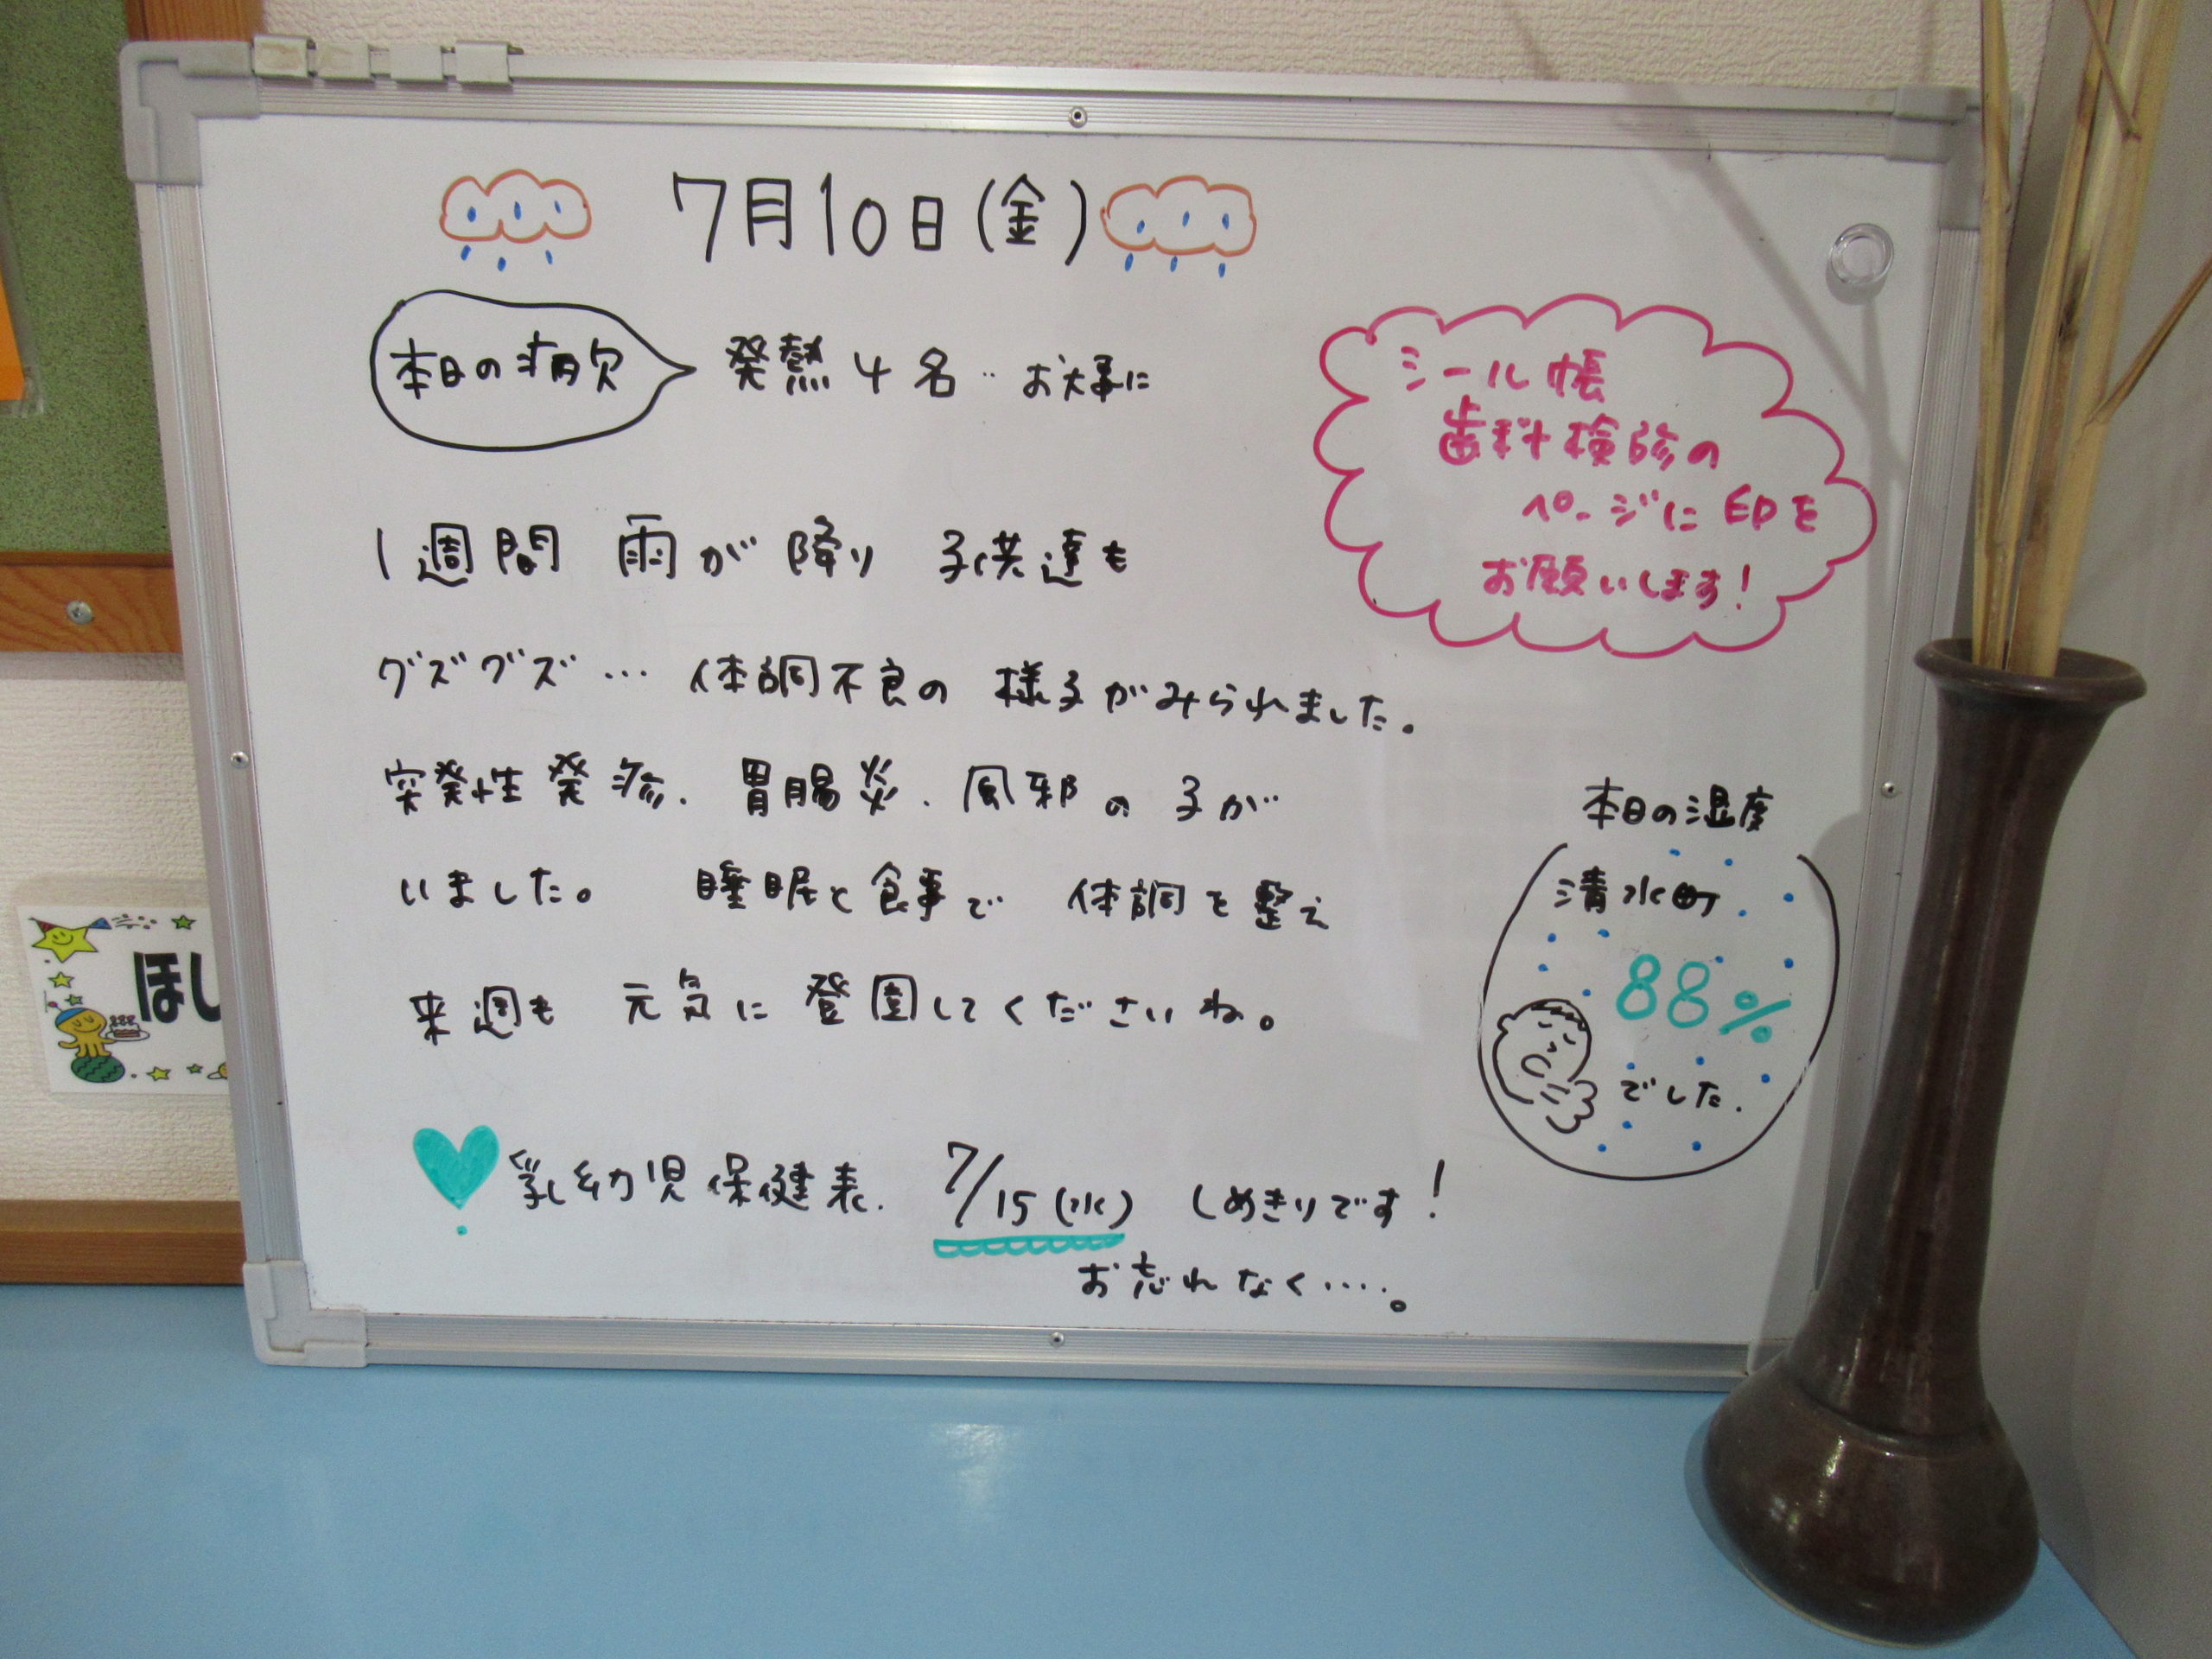 7月10日(金)
本日の病欠
発熱4名‥お大事に
シール帳
歯科検診の
ページに印を
お願いします!
1週間 雨が降り 子供達も
グズグズ… 体調不良の 様子がみられました。
突発性発疹. 胃腸炎. 風邪の子が
いました。 睡眠と食事で 体調を整え
来週も 元気に登園してくださいね。
本日の湿度
清水町
88%
でした.
乳幼児保健表. 7/15(水) しめきりです!
お忘れなく‥‥。
ほし